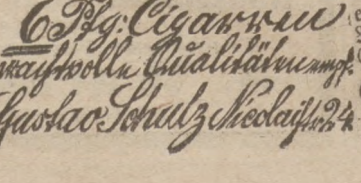 6 Pfg: Cigarren
prachtvolle Qualitäten empf.
Gustav Schulz Nicolaistr. 24